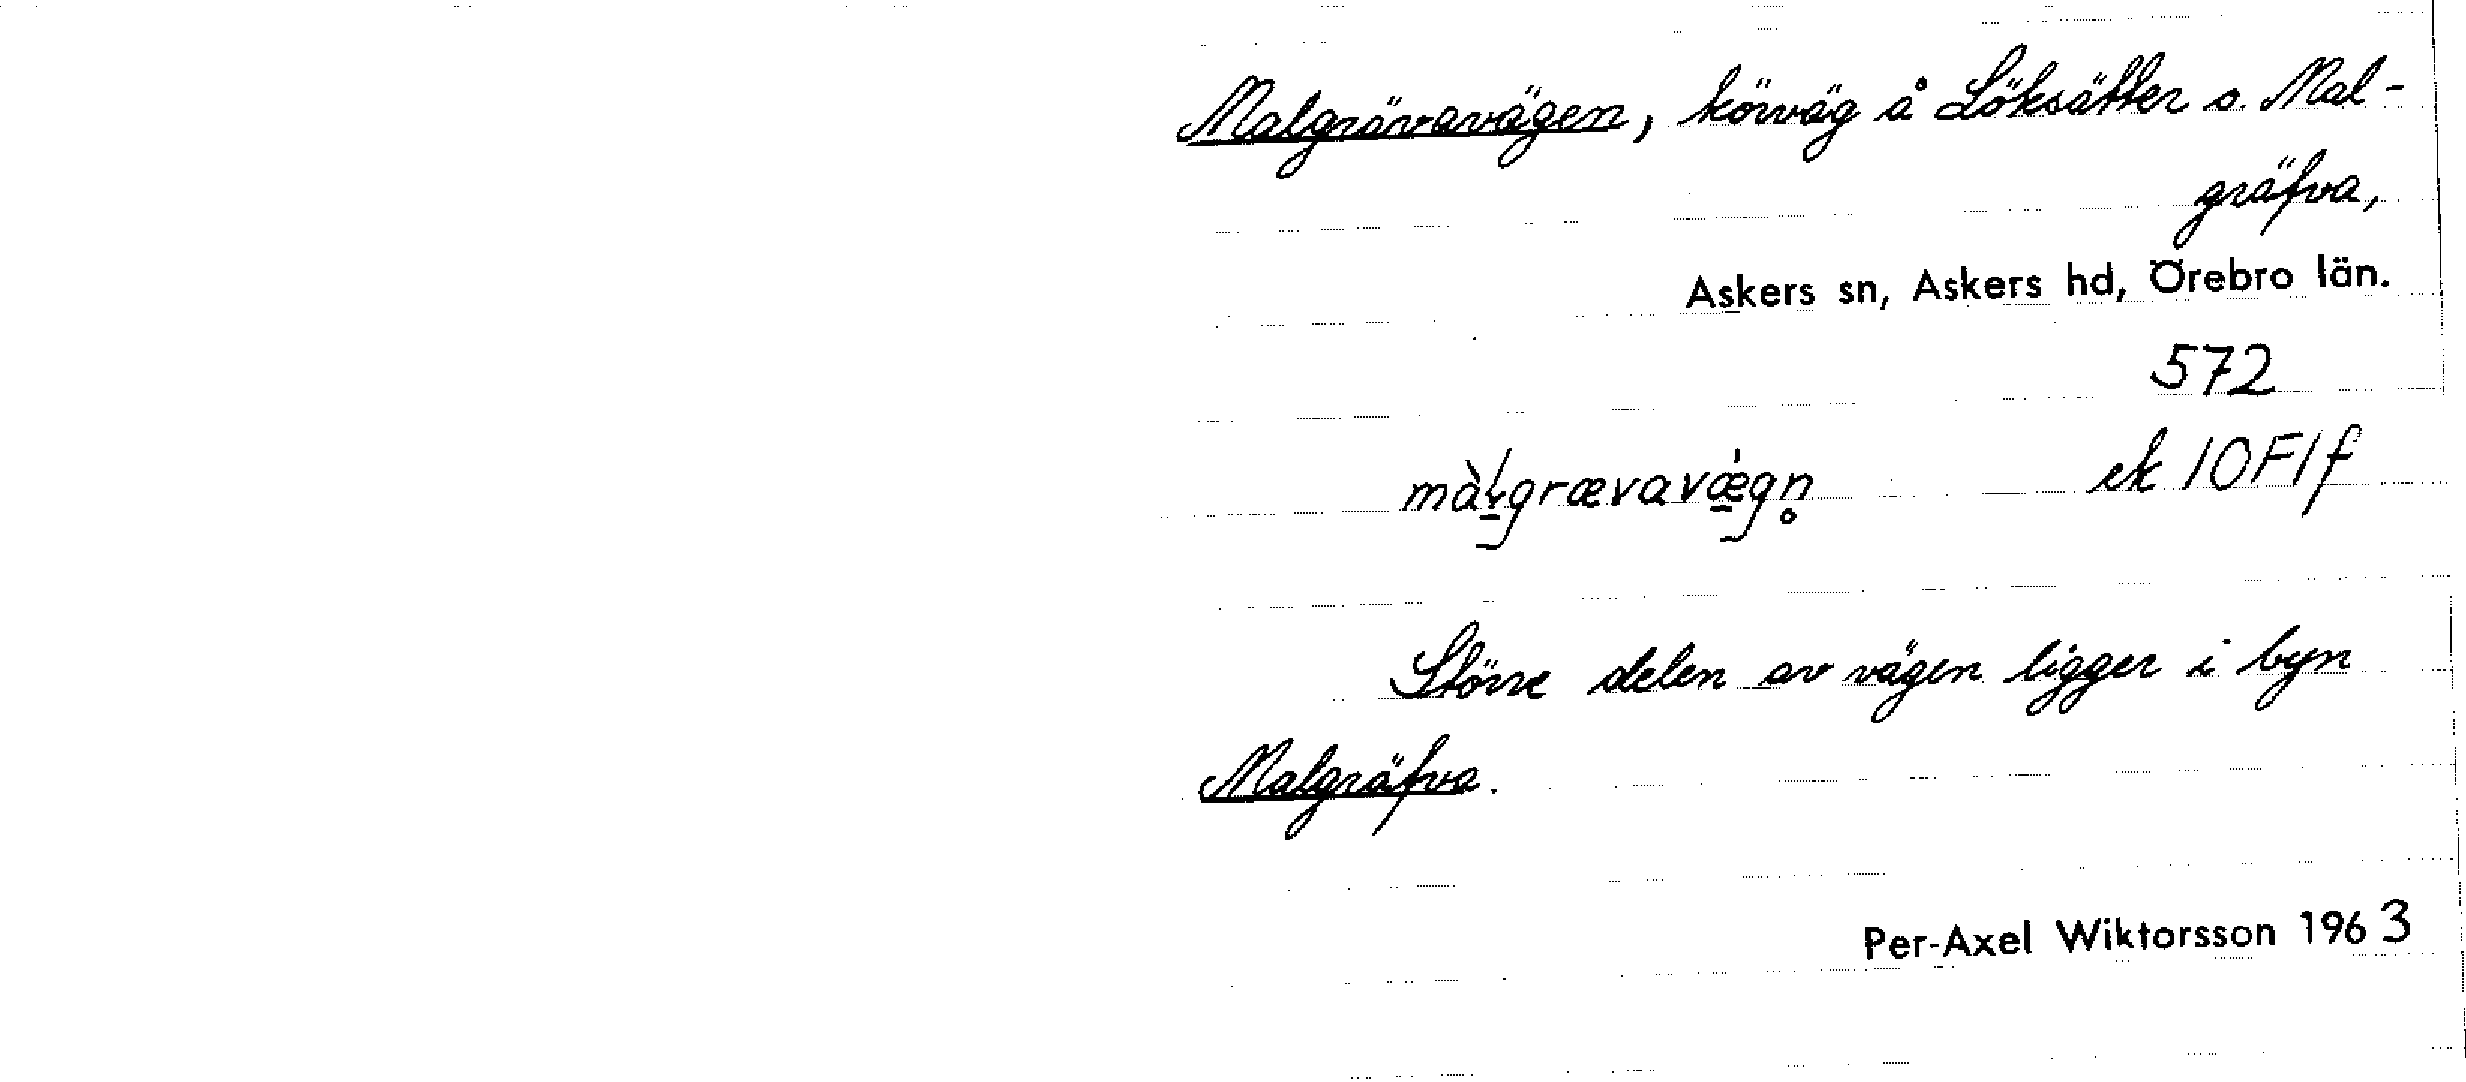 Malgrävavägen, körväg å Löksätter o. Mal-
gräfva,
Askers sn, Askers hd, Örebro län.
572
màl̠grævavǽ̠gn̥ ek 10F1f
Större delen av vägen ligger i byn
Malgräfva.
Per-Axel Wiktorsson 1963